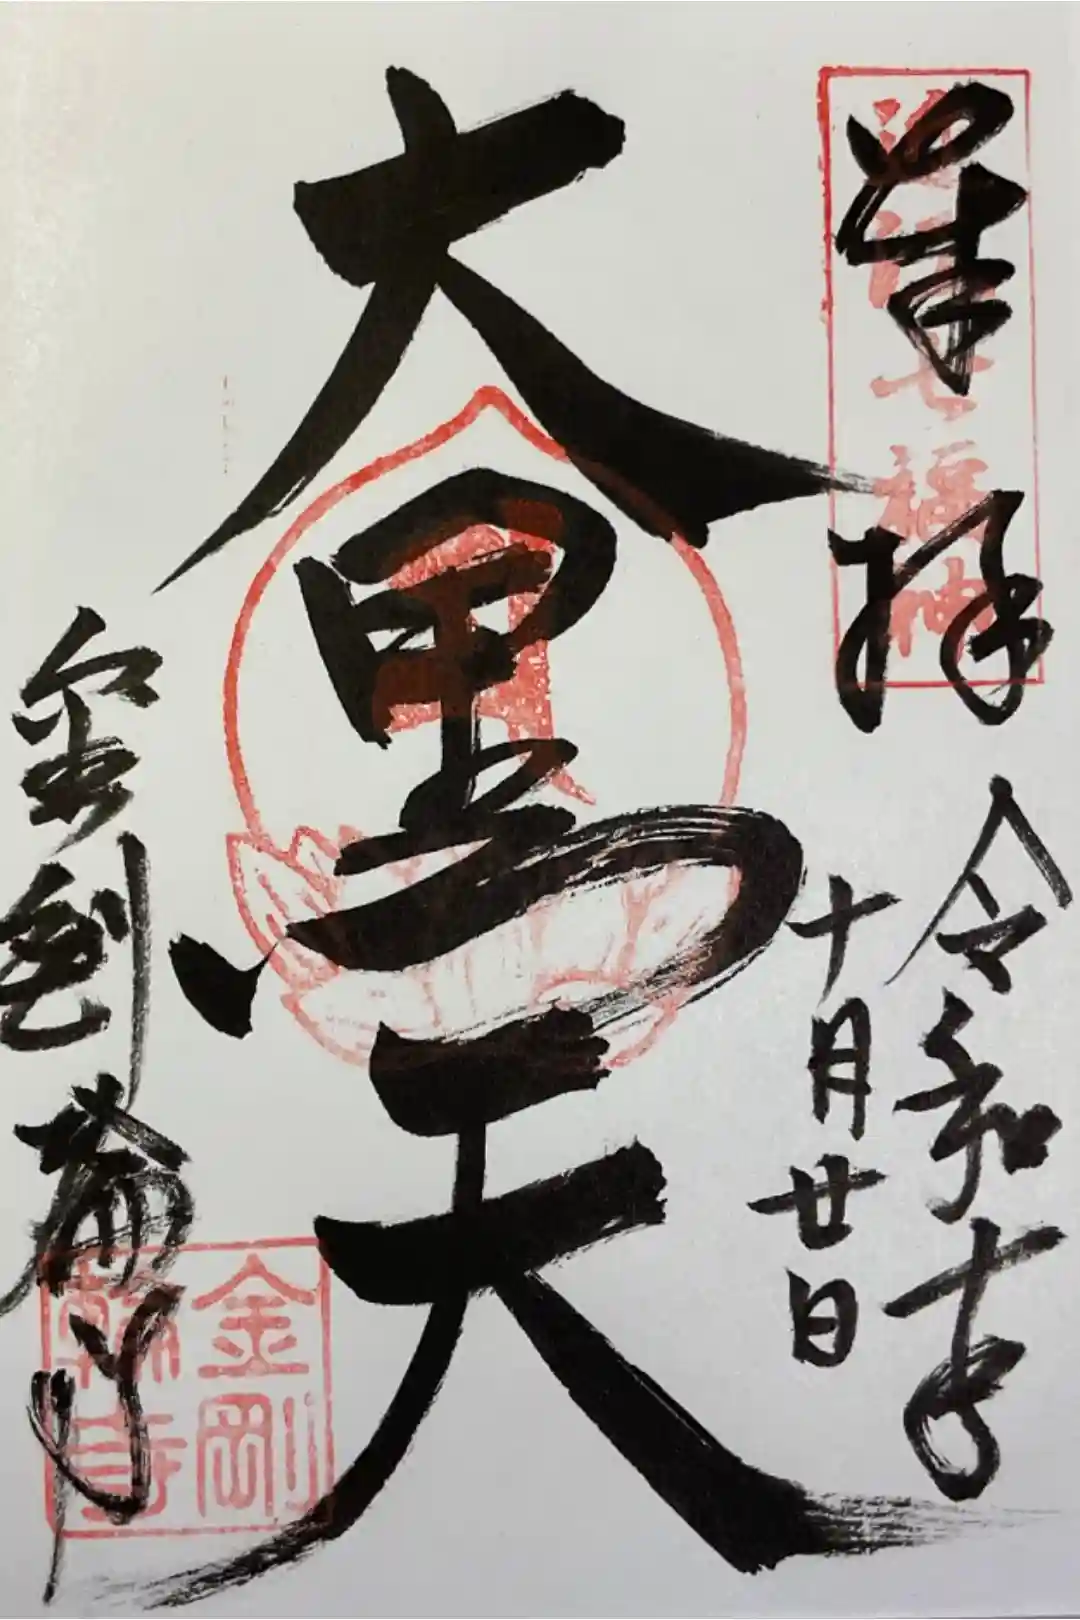 奉拝
七福神
令和六年
十月廿日
大黒天
金剛輪寺
金剛
輪寺